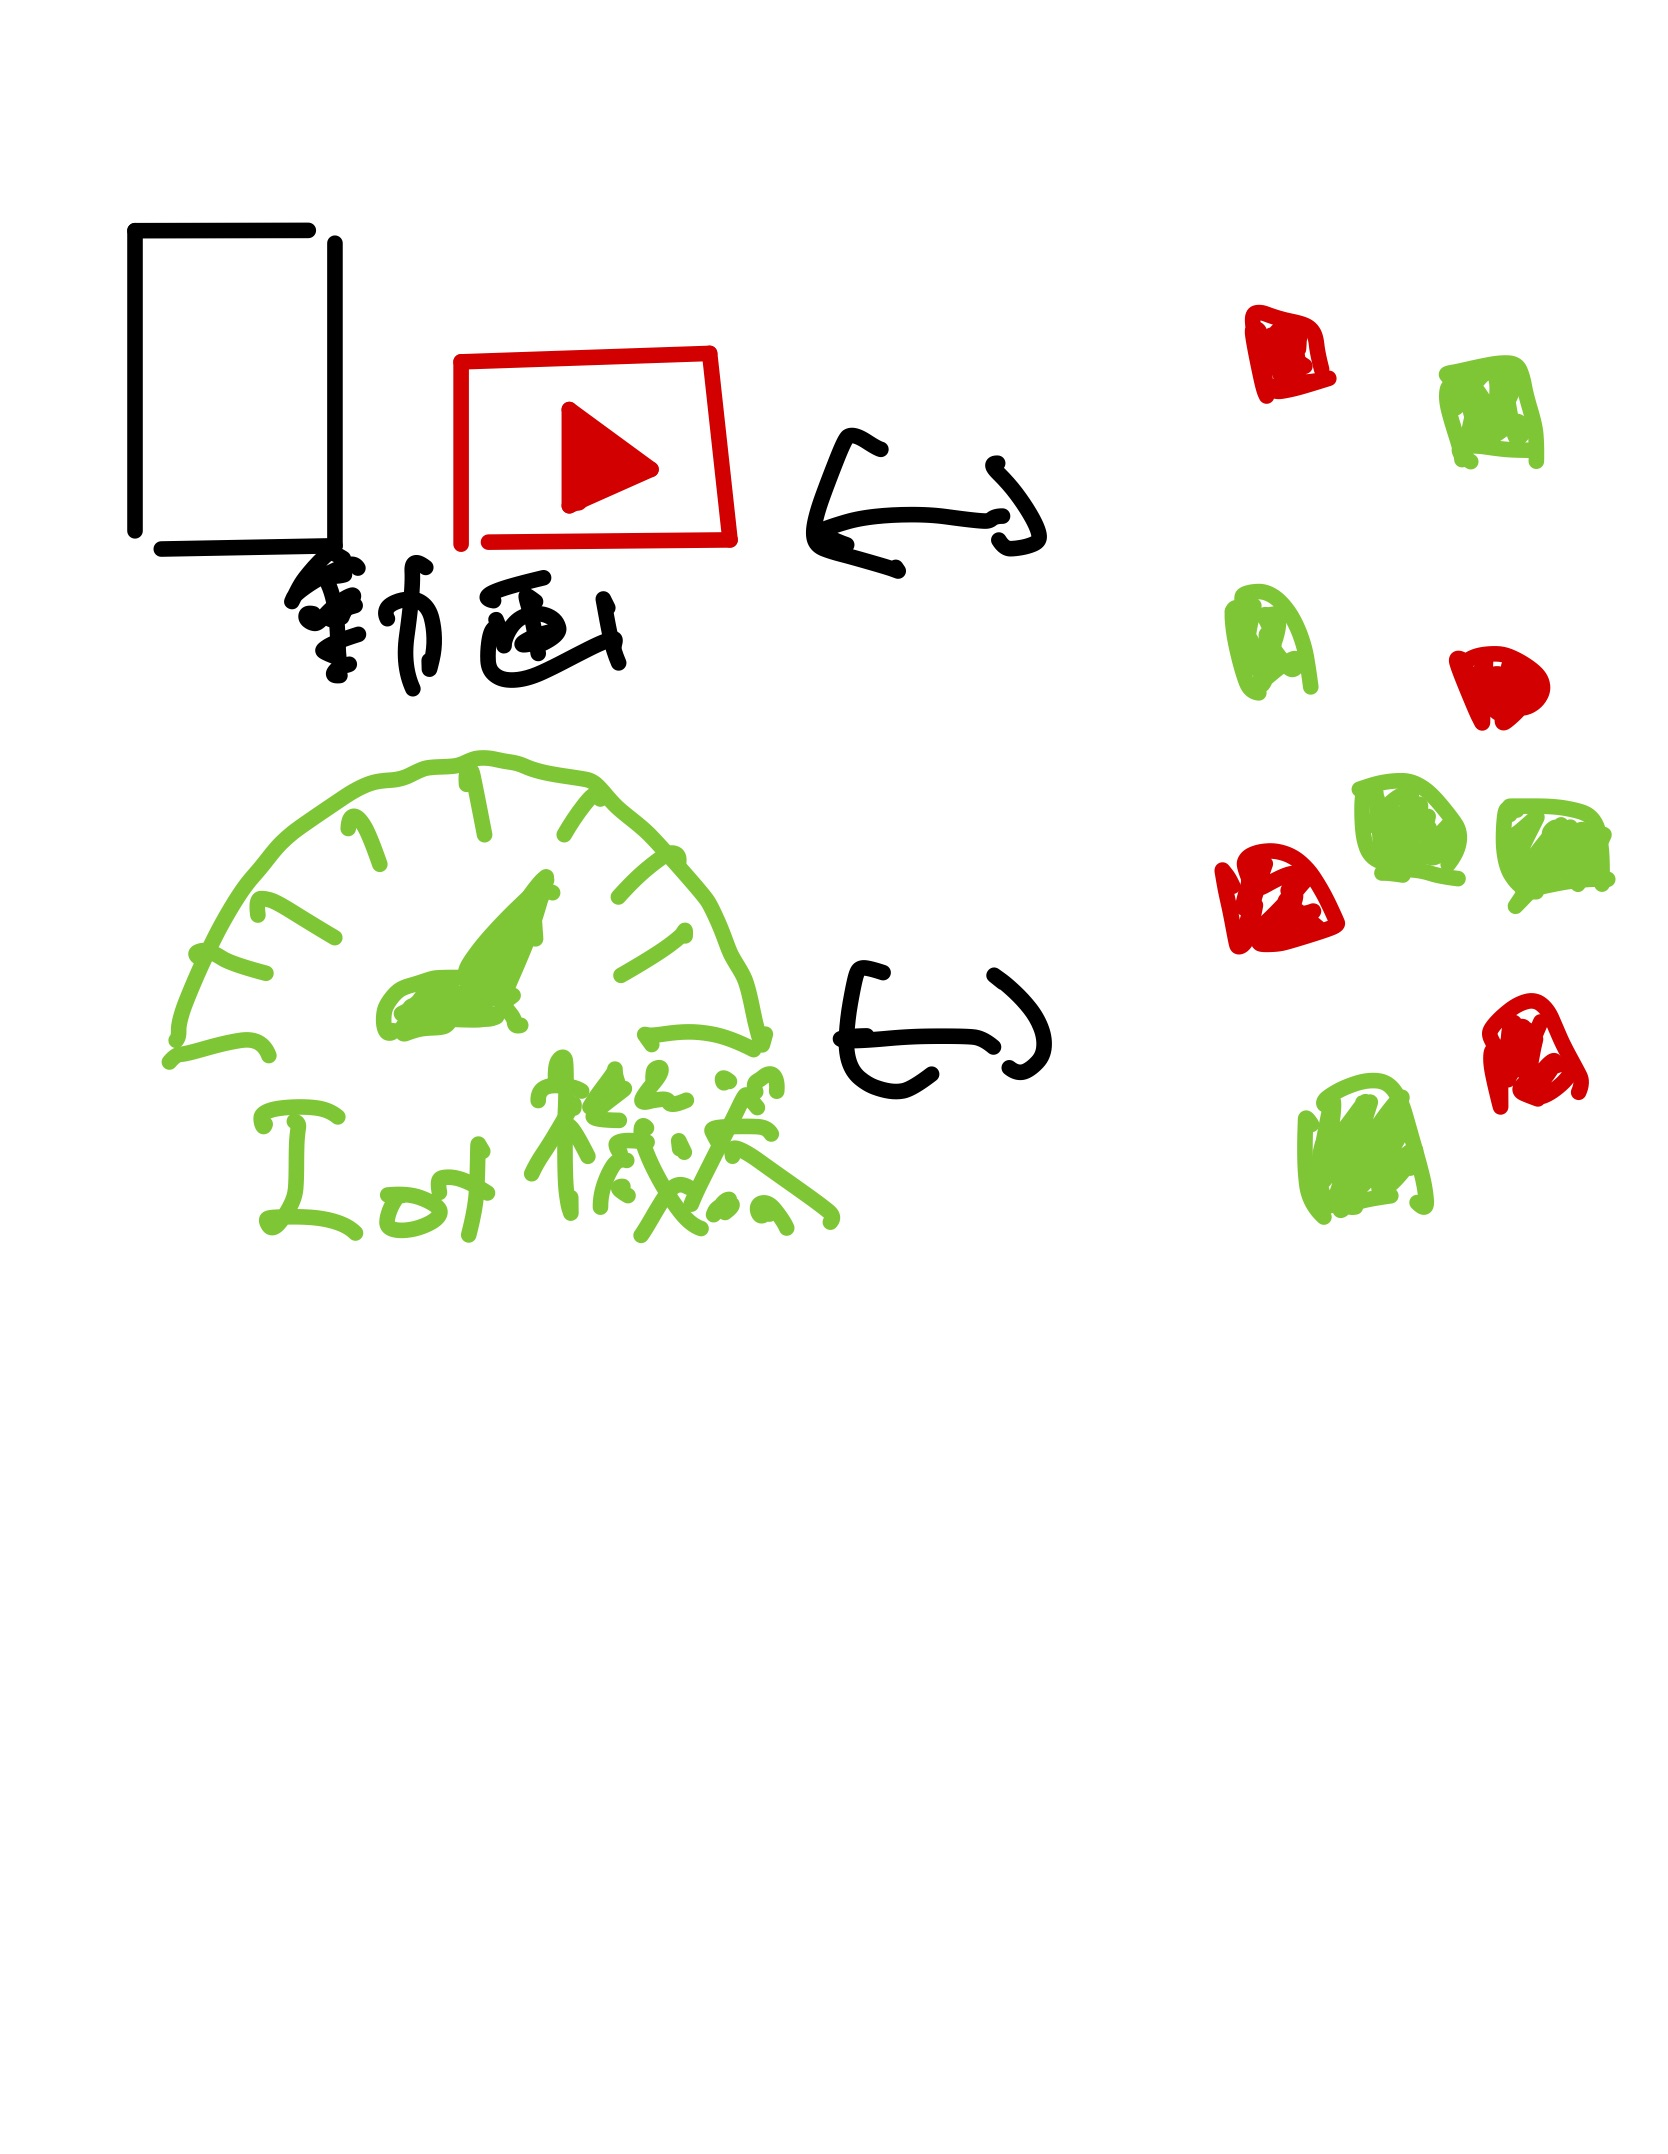 動画
Iot機器